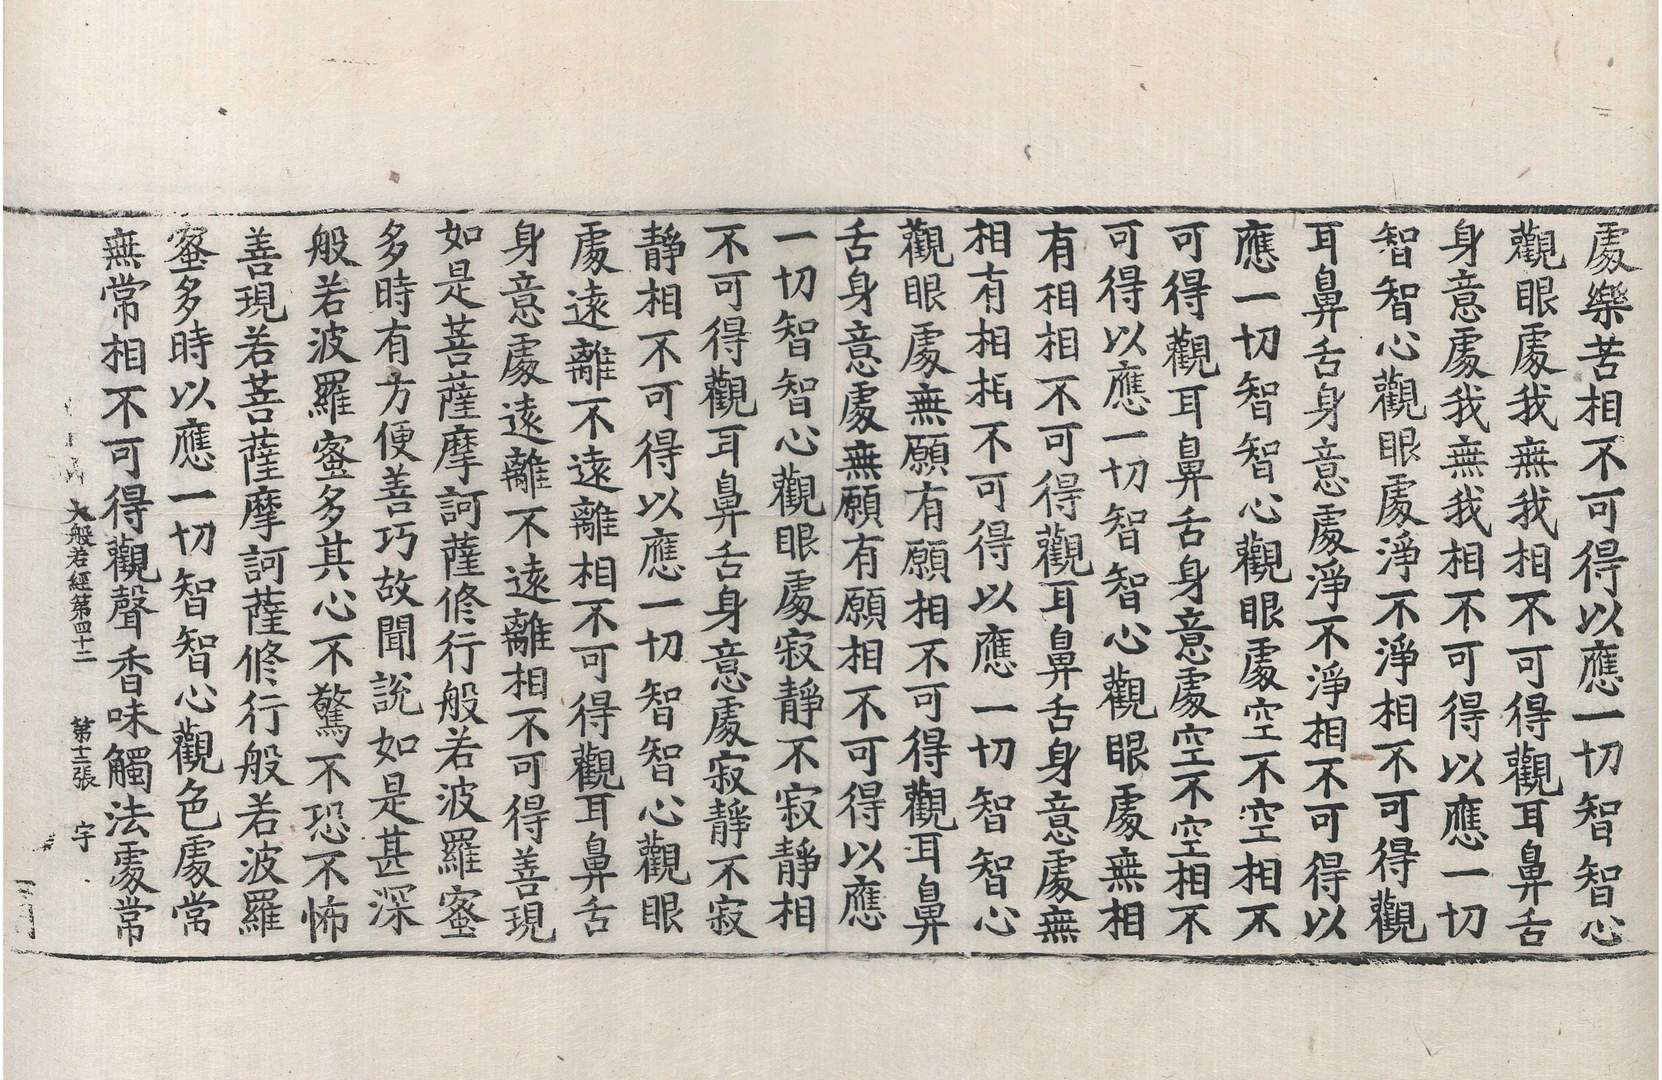 處樂苦相不可得以應一切智智心
觀眼處我無我相不可得觀耳鼻舌
身意處我無我相不可得以應一切
智智心觀眼處淨不淨相不可得觀
耳鼻舌身意處淨不淨相不可得以
應一切智智心觀眼處空不空相不
可得觀耳鼻舌身意處空不空相不
可得以應一切智智心觀眼處無相
有相相不可得觀耳鼻舌身意處無
相有相相不可得以應一切智智心
觀眼處無願有願相不可得觀耳鼻
舌身意處無願有願相不可得以應
一切智智心觀眼處寂靜不寂靜相
不可得觀耳鼻舌身意處寂靜不寂
靜相不可得以應一切智智心觀眼
處遠離不遠離相不可得觀耳鼻舌
身意處遠離不遠離相不可得善現
如是菩薩摩訶薩修行般若波羅蜜
多時有方便善巧故聞說如是甚深
般若波羅蜜多其心不驚不恐不怖
善現若菩薩摩訶薩修行般若波羅
蜜多時以應一切智智心觀色處常
無常相不可得觀聲香味觸法處常
大般若經第四十二 第十三張 字